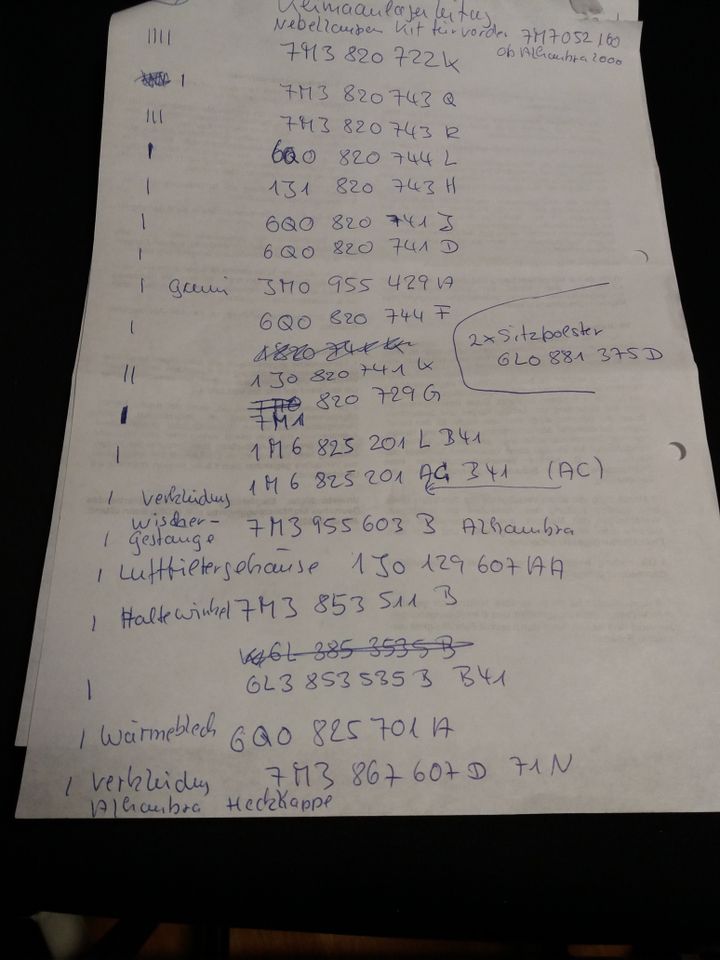 Klimaanlagenleitung
Nebellampen Kit für vorder 7M7052160
ab Alhambra 2000
|||| 7M3 820 722 K
| 7M3 820 743 Q
||| 7M3 820 743 R
| 6Q0 820 744 L
| 1J1 820 743 H
| 6Q0 820 741 J
| 6Q0 820 741 D
| Grami 3M0 955 429 A
| 6Q0 820 744 F
2x Sitzpolster
6L0 881 375 D
|| 1J0 820 741 K
| 7M1 820 729 G
| 1M6 825 201 L B41
| Verkleidung 1M6 825 201 AC B41 (AC)
| Wischer-
gestänge 7M3 955 603 B Alhambra
| Luftfiltergehäuse 1J0 129 607 AA
| Haltewinkel 7M3 853 511 B
| 6L3 853 535 B B41
| Wärmeblech 6Q0 825 701 A
| Verkleidung 7M3 867 607 D 71N
Alhambra Heckklappe